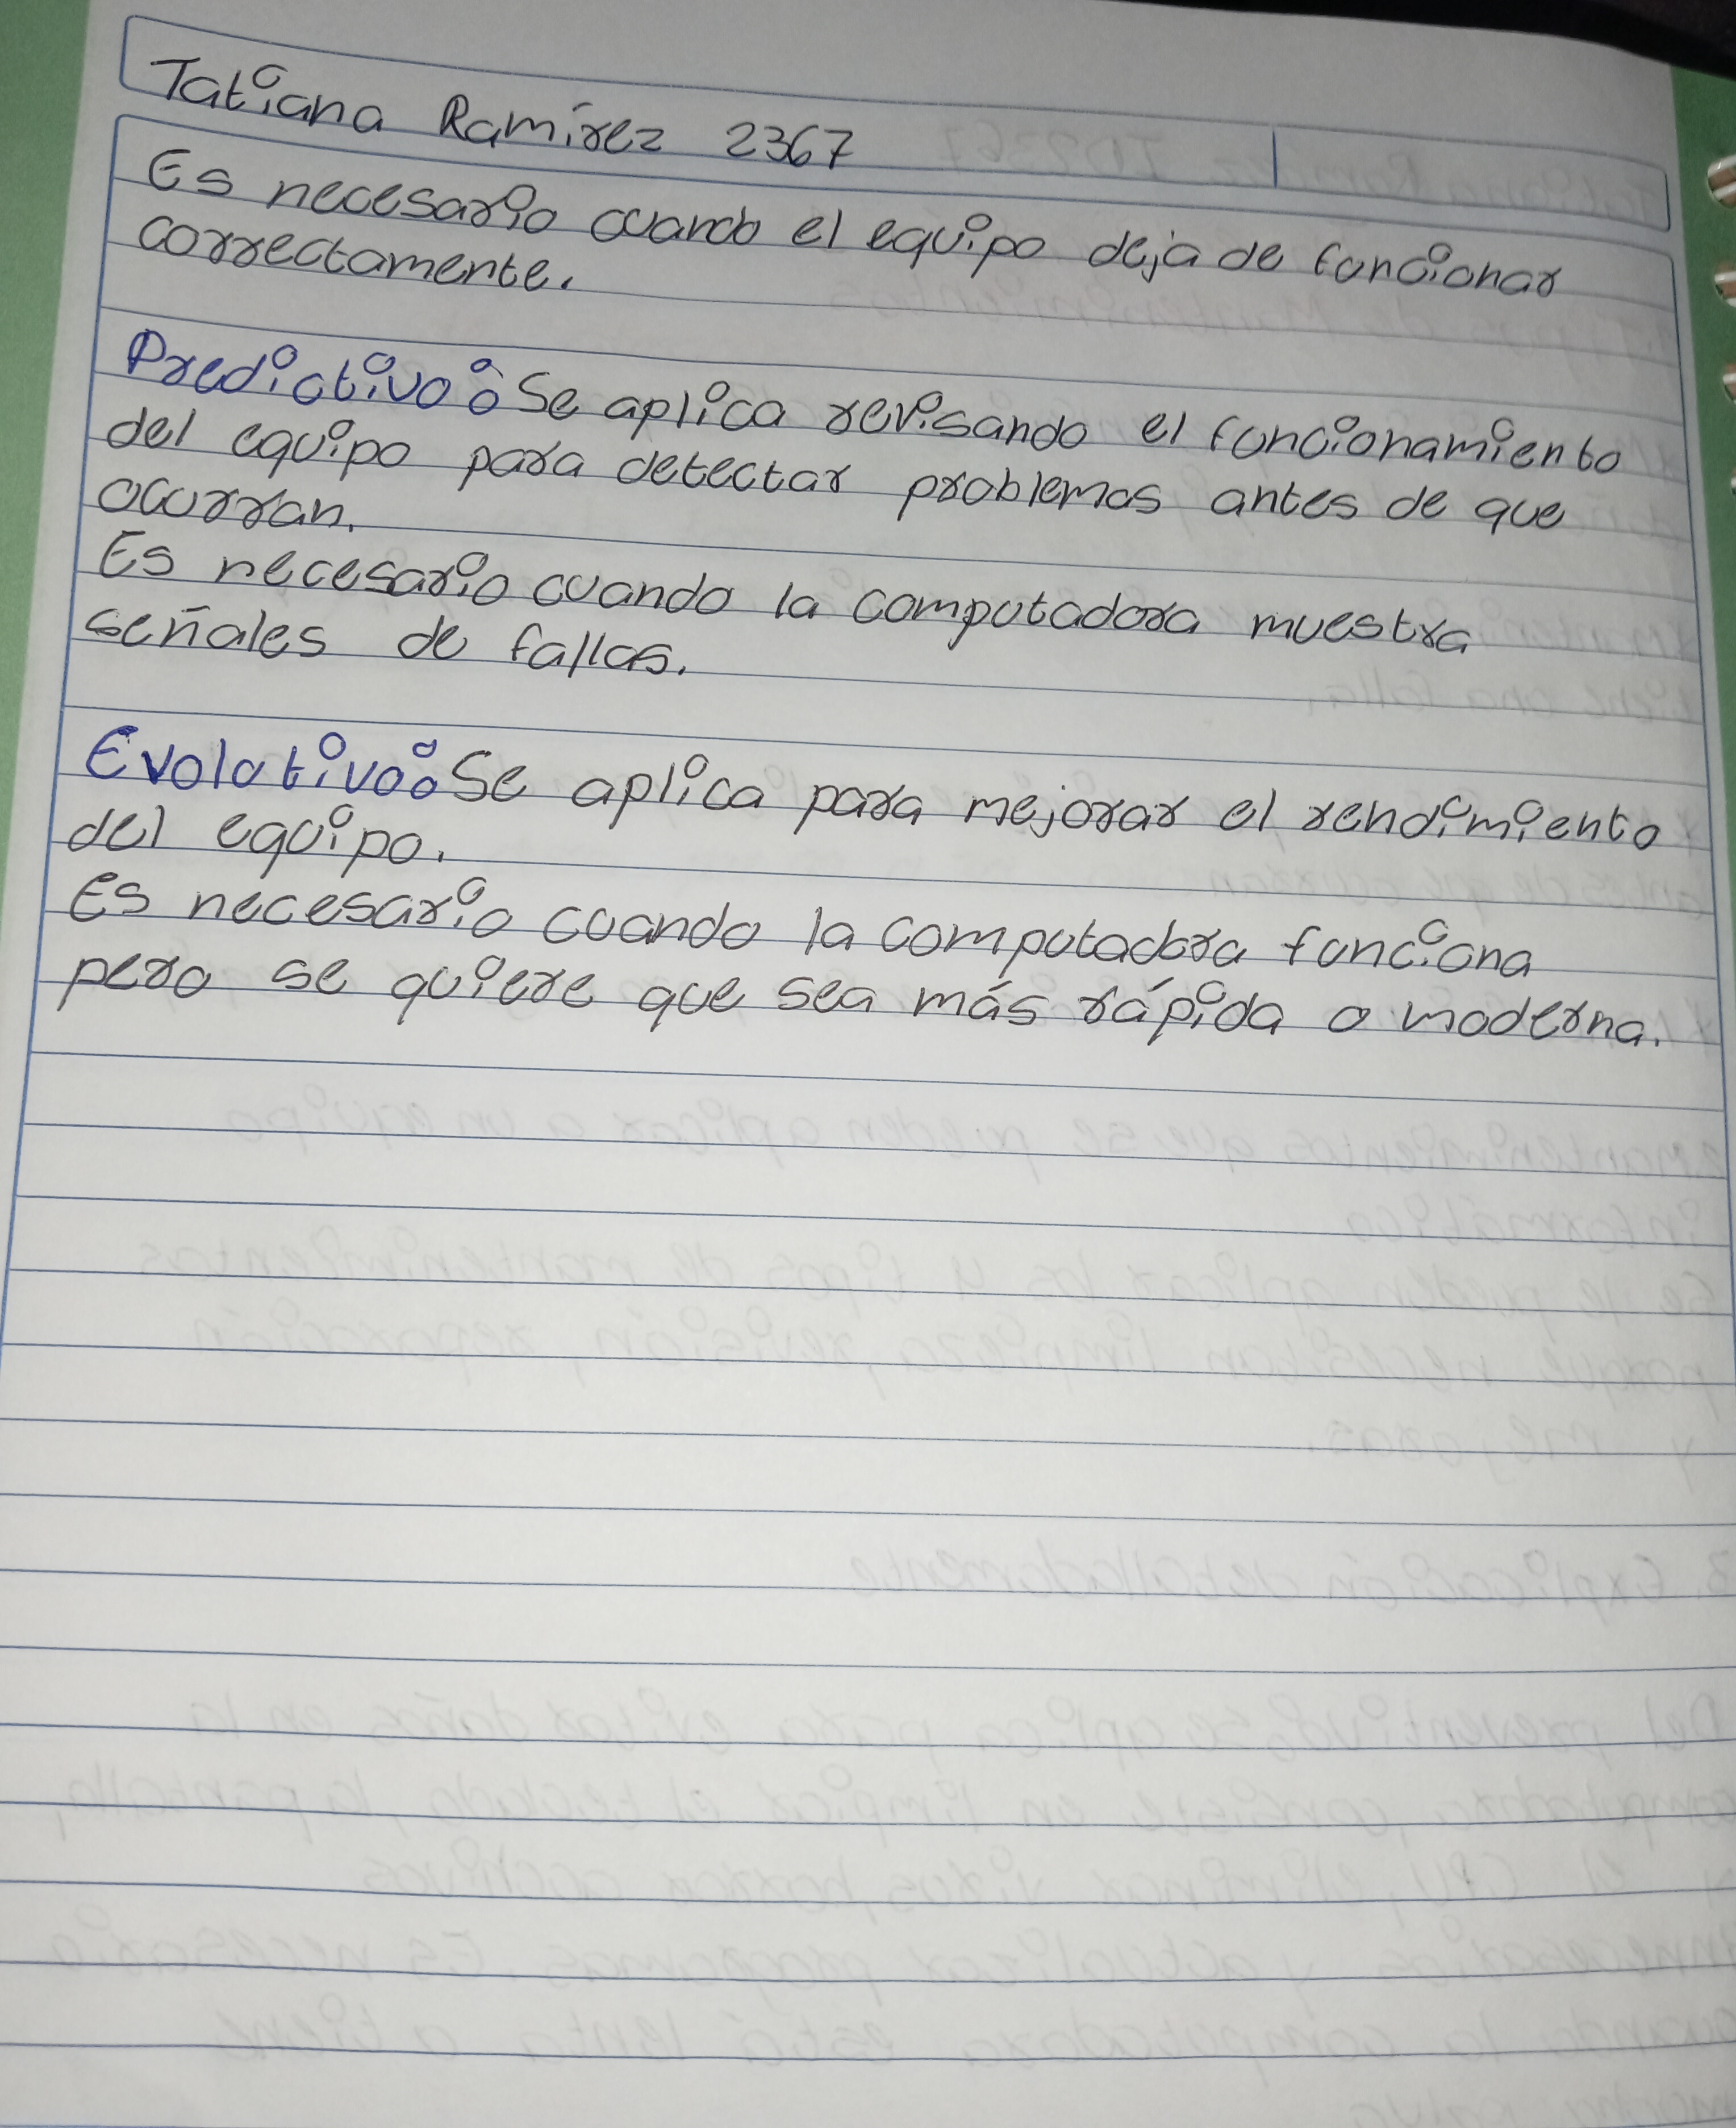 Tatiana Ramírez 2367
Es necesario cuando el equipo deja de funcionar
correctamente.
Predictivo: Se aplica revisando el funcionamiento
del equipo para detectar problemas antes de que
ocurran.
Es necesario cuando la computadora muestra
señales de fallas.
Evolutivo: Se aplica para mejorar el rendimiento
del equipo.
Es necesario cuando la computadora funciona
pero se quiere que sea más rápida o moderna.